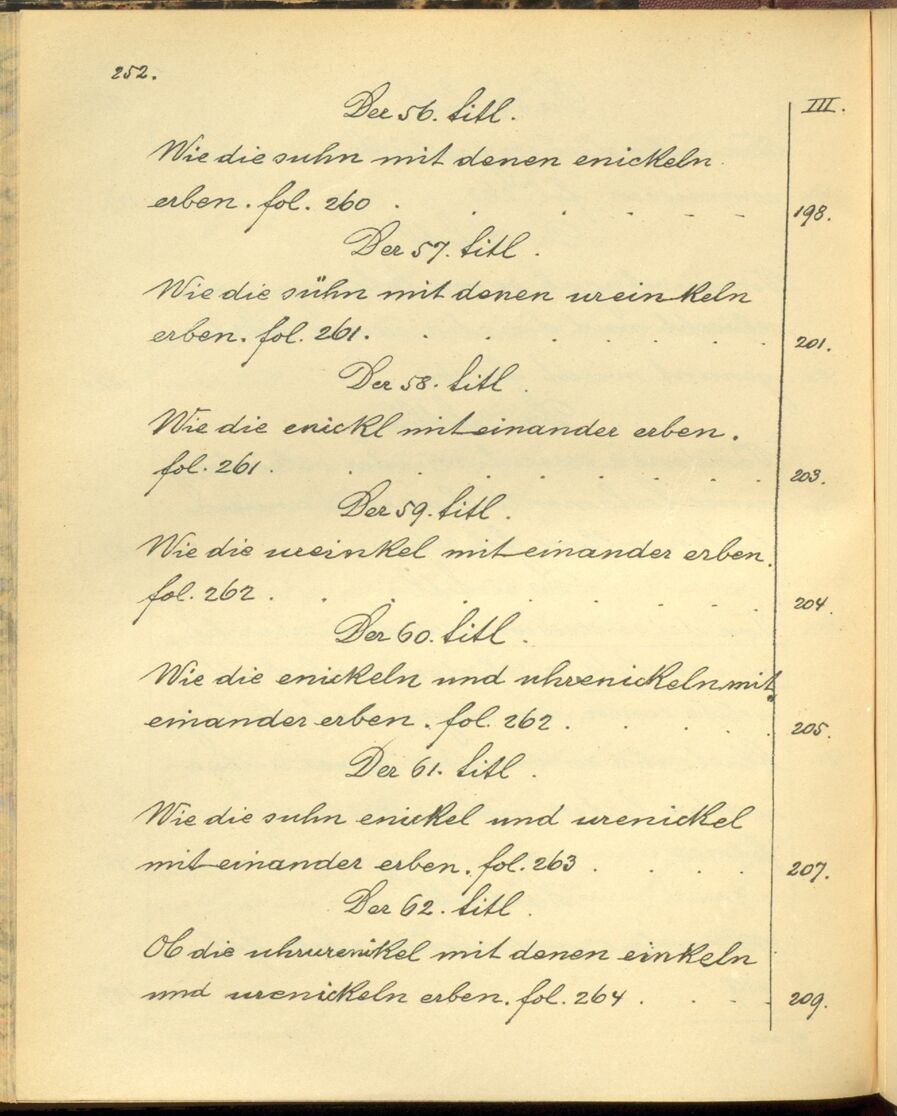 252.
III.
Der 56. titl.
Wie die suhn mit denen enickeln
erben. fol. 260 . . . . . . 198.
Der 57. titl.
Wie die sühn mit denen ureinkeln
erben. fol. 261. . . . . . . 201.
Der 58. titl.
Wie die enickl mit einander erben.
fol. 261. . . . . . . . 203.
Der 59. titl.
Wie die ureinkel mit einander erben.
fol. 262. . . . . . . . 204.
Der 60. titl.
Wie die enickeln und uhrenickeln mit
einander erben. fol. 262. . . . . 205.
Der 61. titl.
Wie die suhn enickel und urenickel
mit einander erben. fol. 263 . . . . 207.
Der 62. titl.
Ob die uhrurenikel mit denen einkeln
und urenickeln erben. fol. 264 . . . . 209.